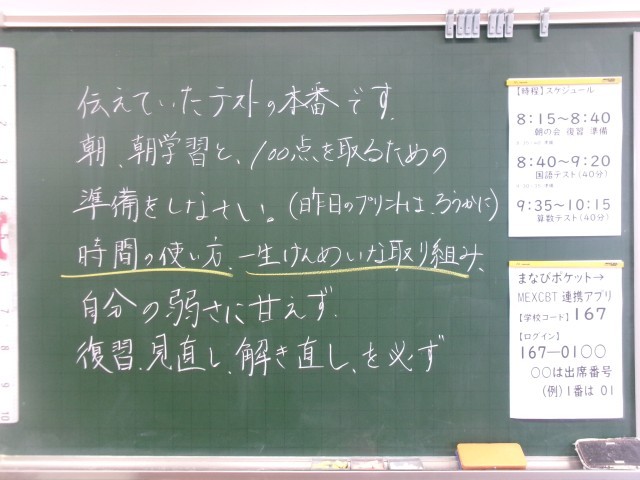 伝えていたテストの本番です.
朝、朝学習と、100点を取るための
準備をしなさい。(昨日のプリントは、ろうかに)
時間の使い方、一生けんめいな取り組み、
自分の弱さに甘えず、
復習、見直し、解き直し、を必ず
【時程】スケジュール
8:15～8:40
朝の会 復習 準備
8:40～9:20
国語テスト(40分)
9:35～10:15
算数テスト(40分)
まなびポケット→
MEXCBT 連携アプリ
【学校コード】167
【ログイン】
167―01〇〇
〇〇は出席番号
(例)1番は 01
1
2
3
4
5
6
7
8
9
10